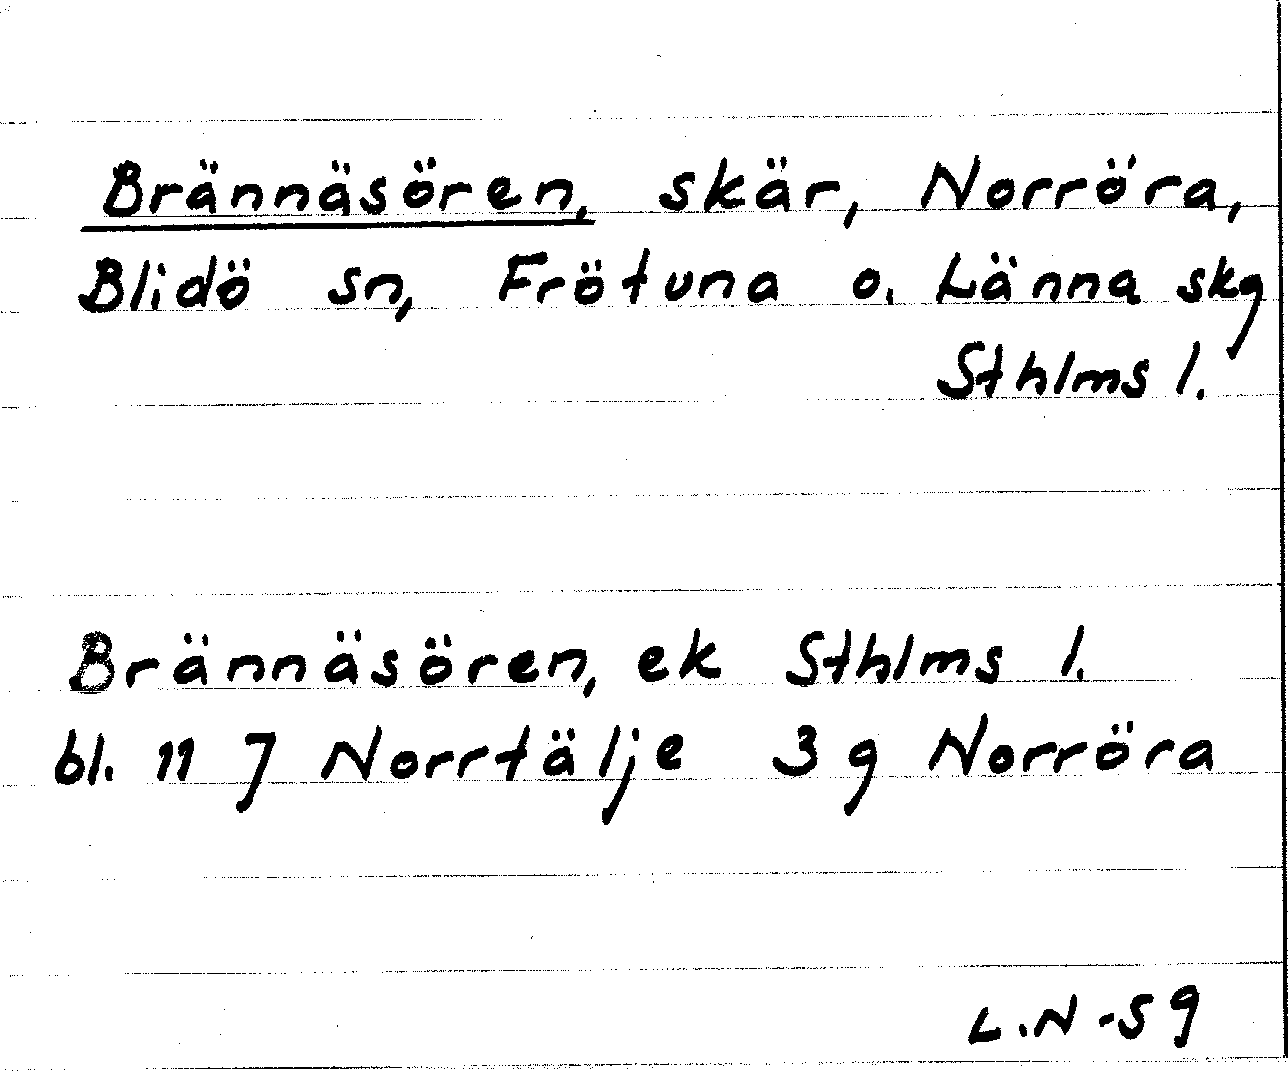 Brännäsören, skär, Norröra,
Blidö sn, Frötuna o. Länna skg
Sthlms l.
Brännäsören, ek Sthlms l.
bl. 11 7 Norrtälje 3 g Norröra
L.N -59